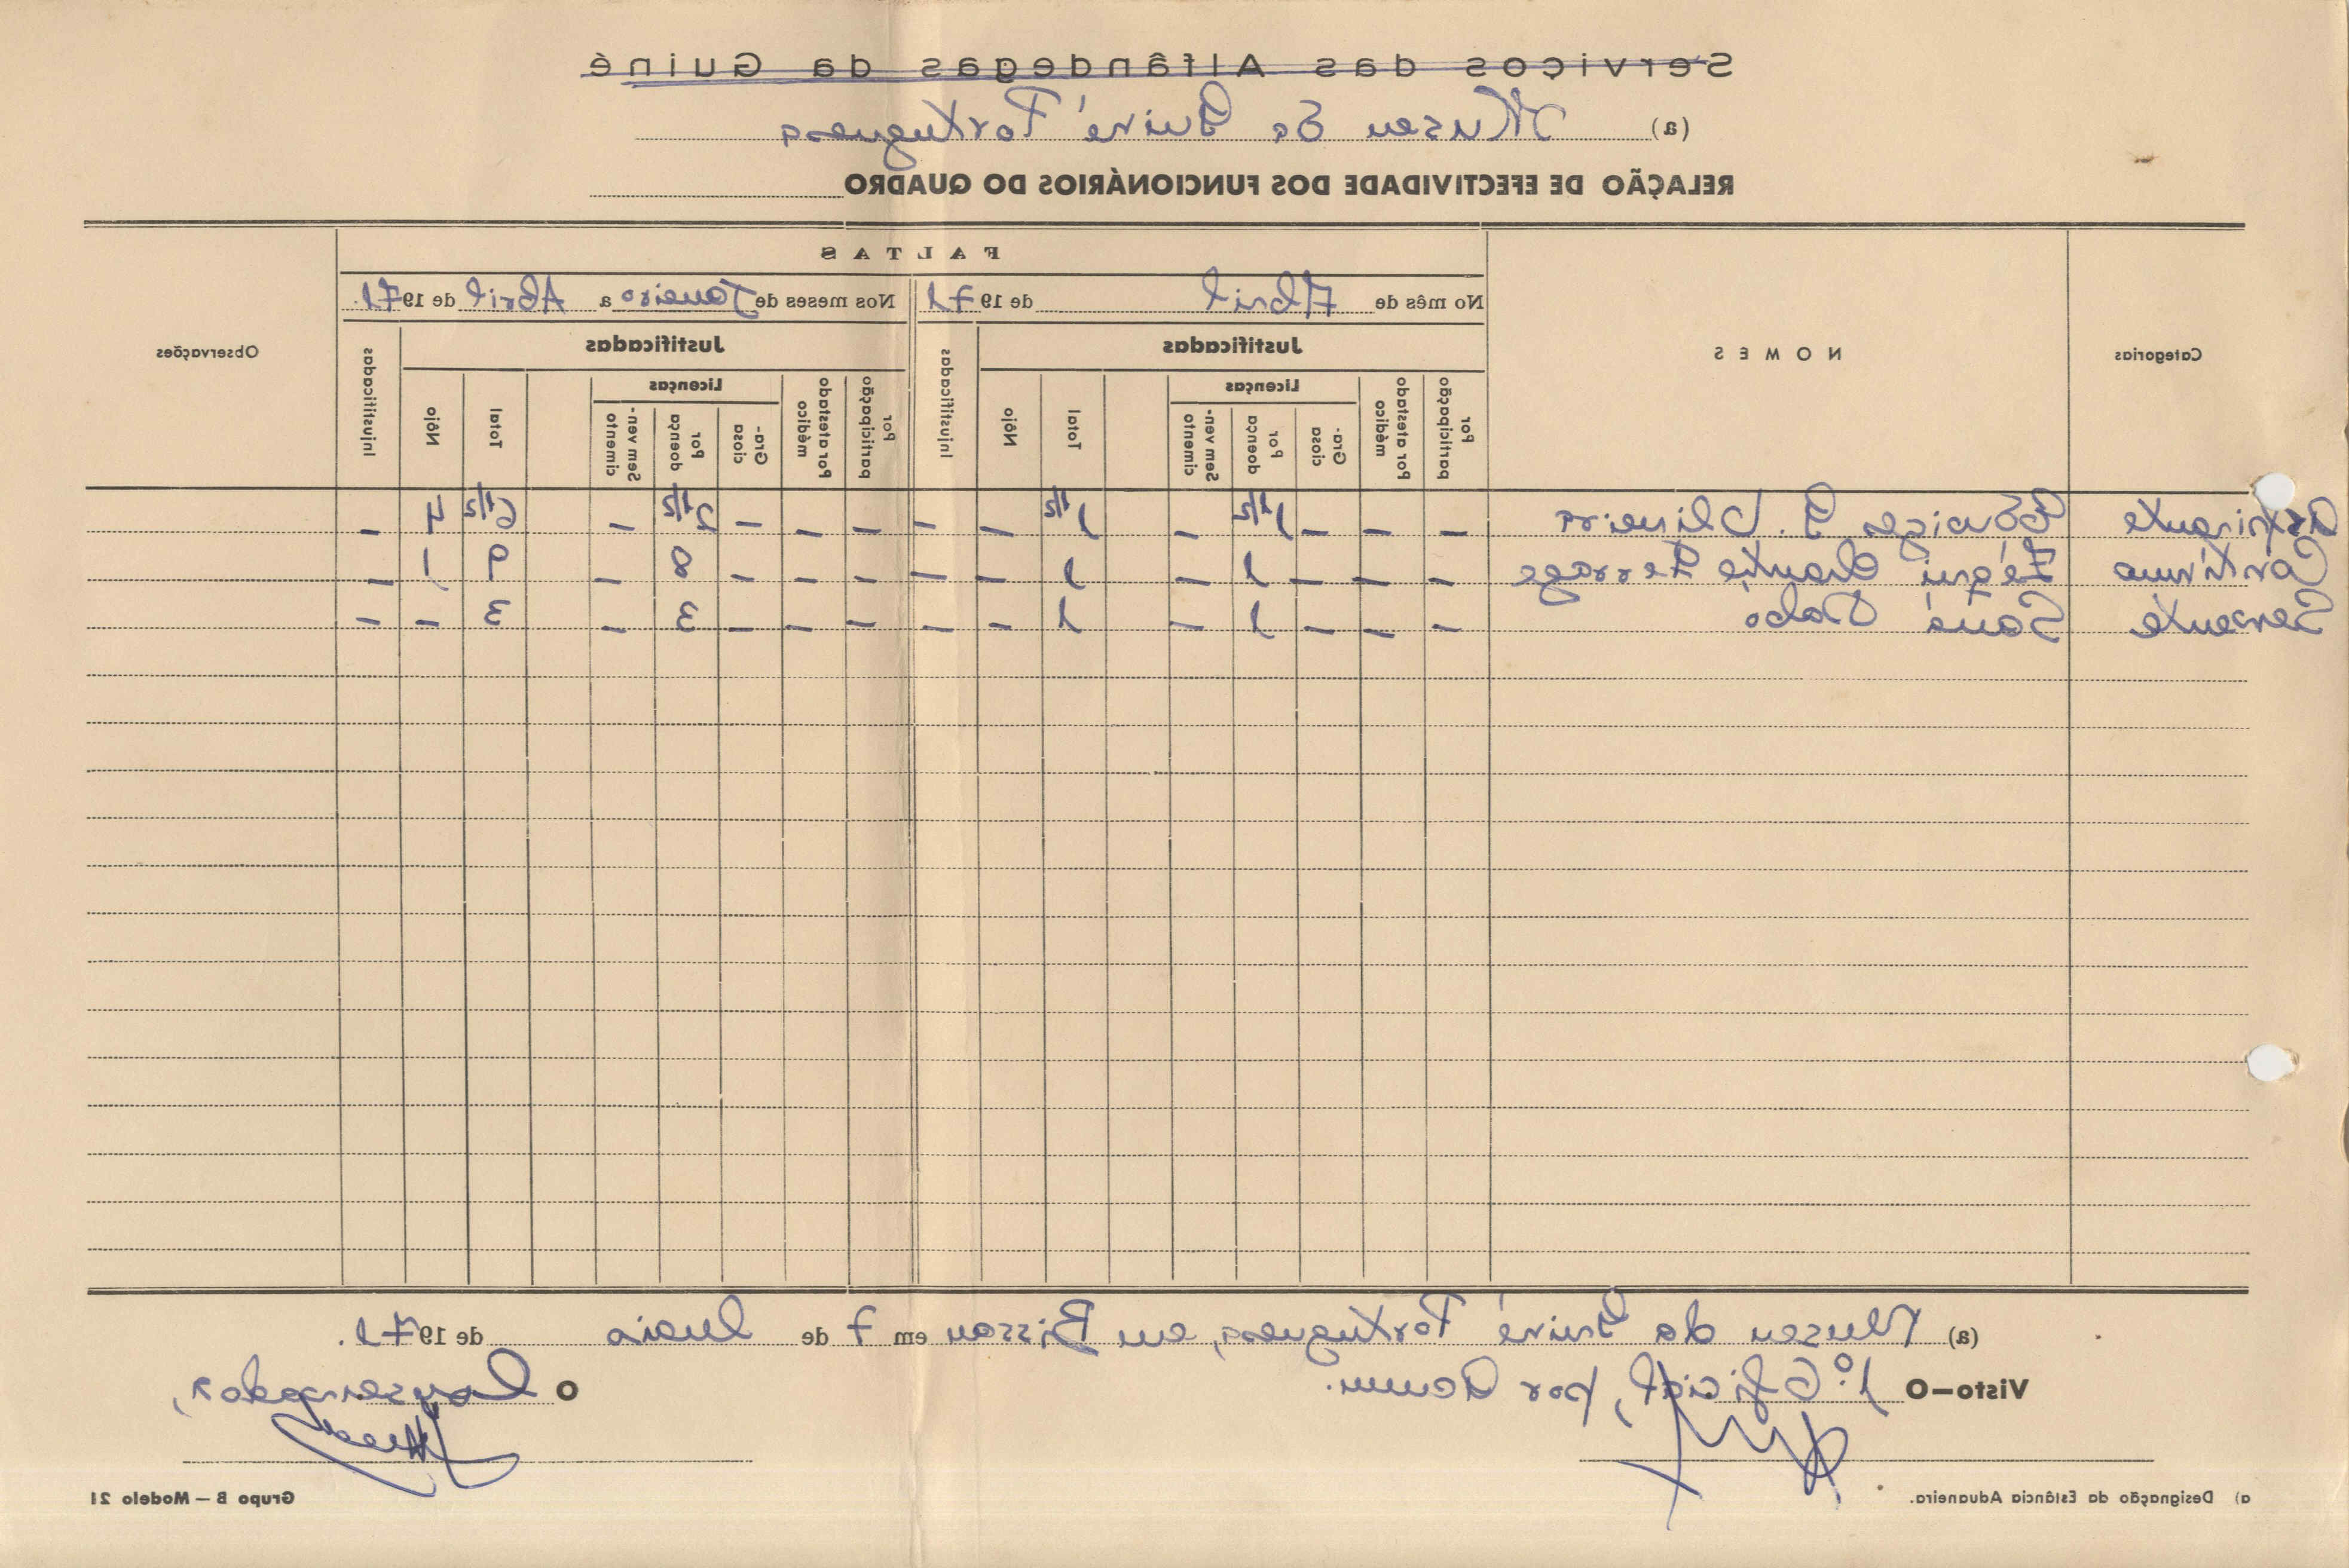 Serviços das Alfândegas da Guiné
(a) Museu da Guiné Portuguesa
RELAÇÃO DE EFECTIVIDADE DOS FUNCIONÁRIOS DO QUADRO
Categorias
NOMES
FALTAS
Observações
No mês de Abril de 1971
Nos meses de Janeiro a Abril de 1971.
Justificadas
Injustificadas
Justificadas
Injustificadas
Por participação
Por atestado médico
Licenças
Gra-ciosa
Por doença
Sem ven-cimento
Total
Nôjo
Por participação
Por atestado médico
Licenças
Gra-ciosa
Por doença
Sem ven-cimento
Total
Nôjo
— — — 1 1/2 — 1 1/2 — — — — — 2 1/2 — 6 1/2 4 —
Contínua — — — 1 — 1 — — — — — 8 — 9 1 —
Servente — — — 1 — 1 — — — — — 3 — 3 — —
(a) Museu da Guiné Portuguesa, em Bissau em 7 de Maio de 1971.
Visto—O 1.º Oficial, por acum.
O
a) Designação da Estância Aduaneira.
Grupo B — Modelo 21